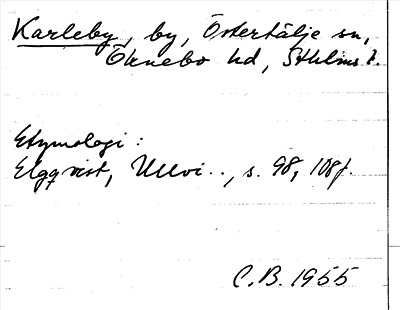 Karleby, by, Östertälje sn,
Öknebo hd, Sthlms l.
Etymologi:
Elgqvist, Ullvi.., s. 98, 108f.
C.B. 1955